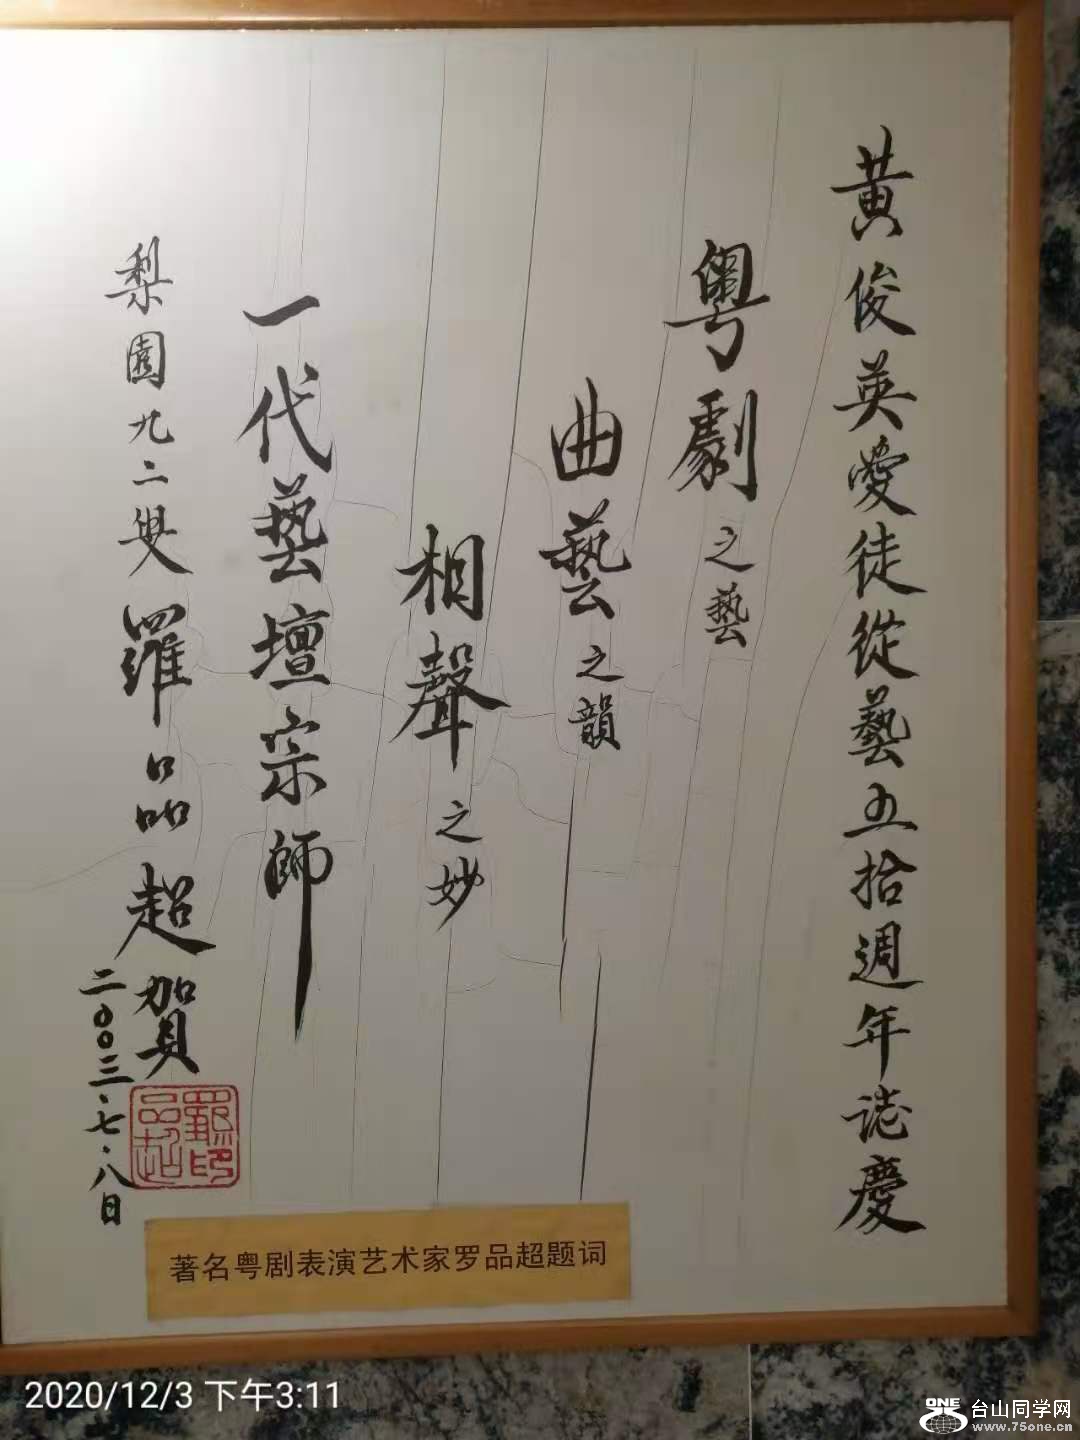 黃俊英愛徒從藝五拾週年誌慶
粵劇之藝
曲藝之韻
相聲之妙
一代藝壇宗師
梨園九二叟 羅品超賀
二00三.七.八日
羅品超印
著名粤剧表演艺术家罗品超题词
2020/12/3 下午3:11
ONE 台山同学网
www.75one.cn